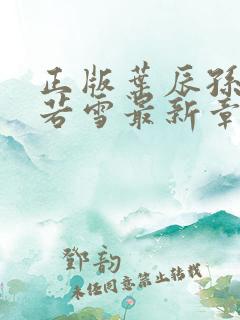 正版葉辰孫
若雪最新章
鄧韵
未经同意禁止转载